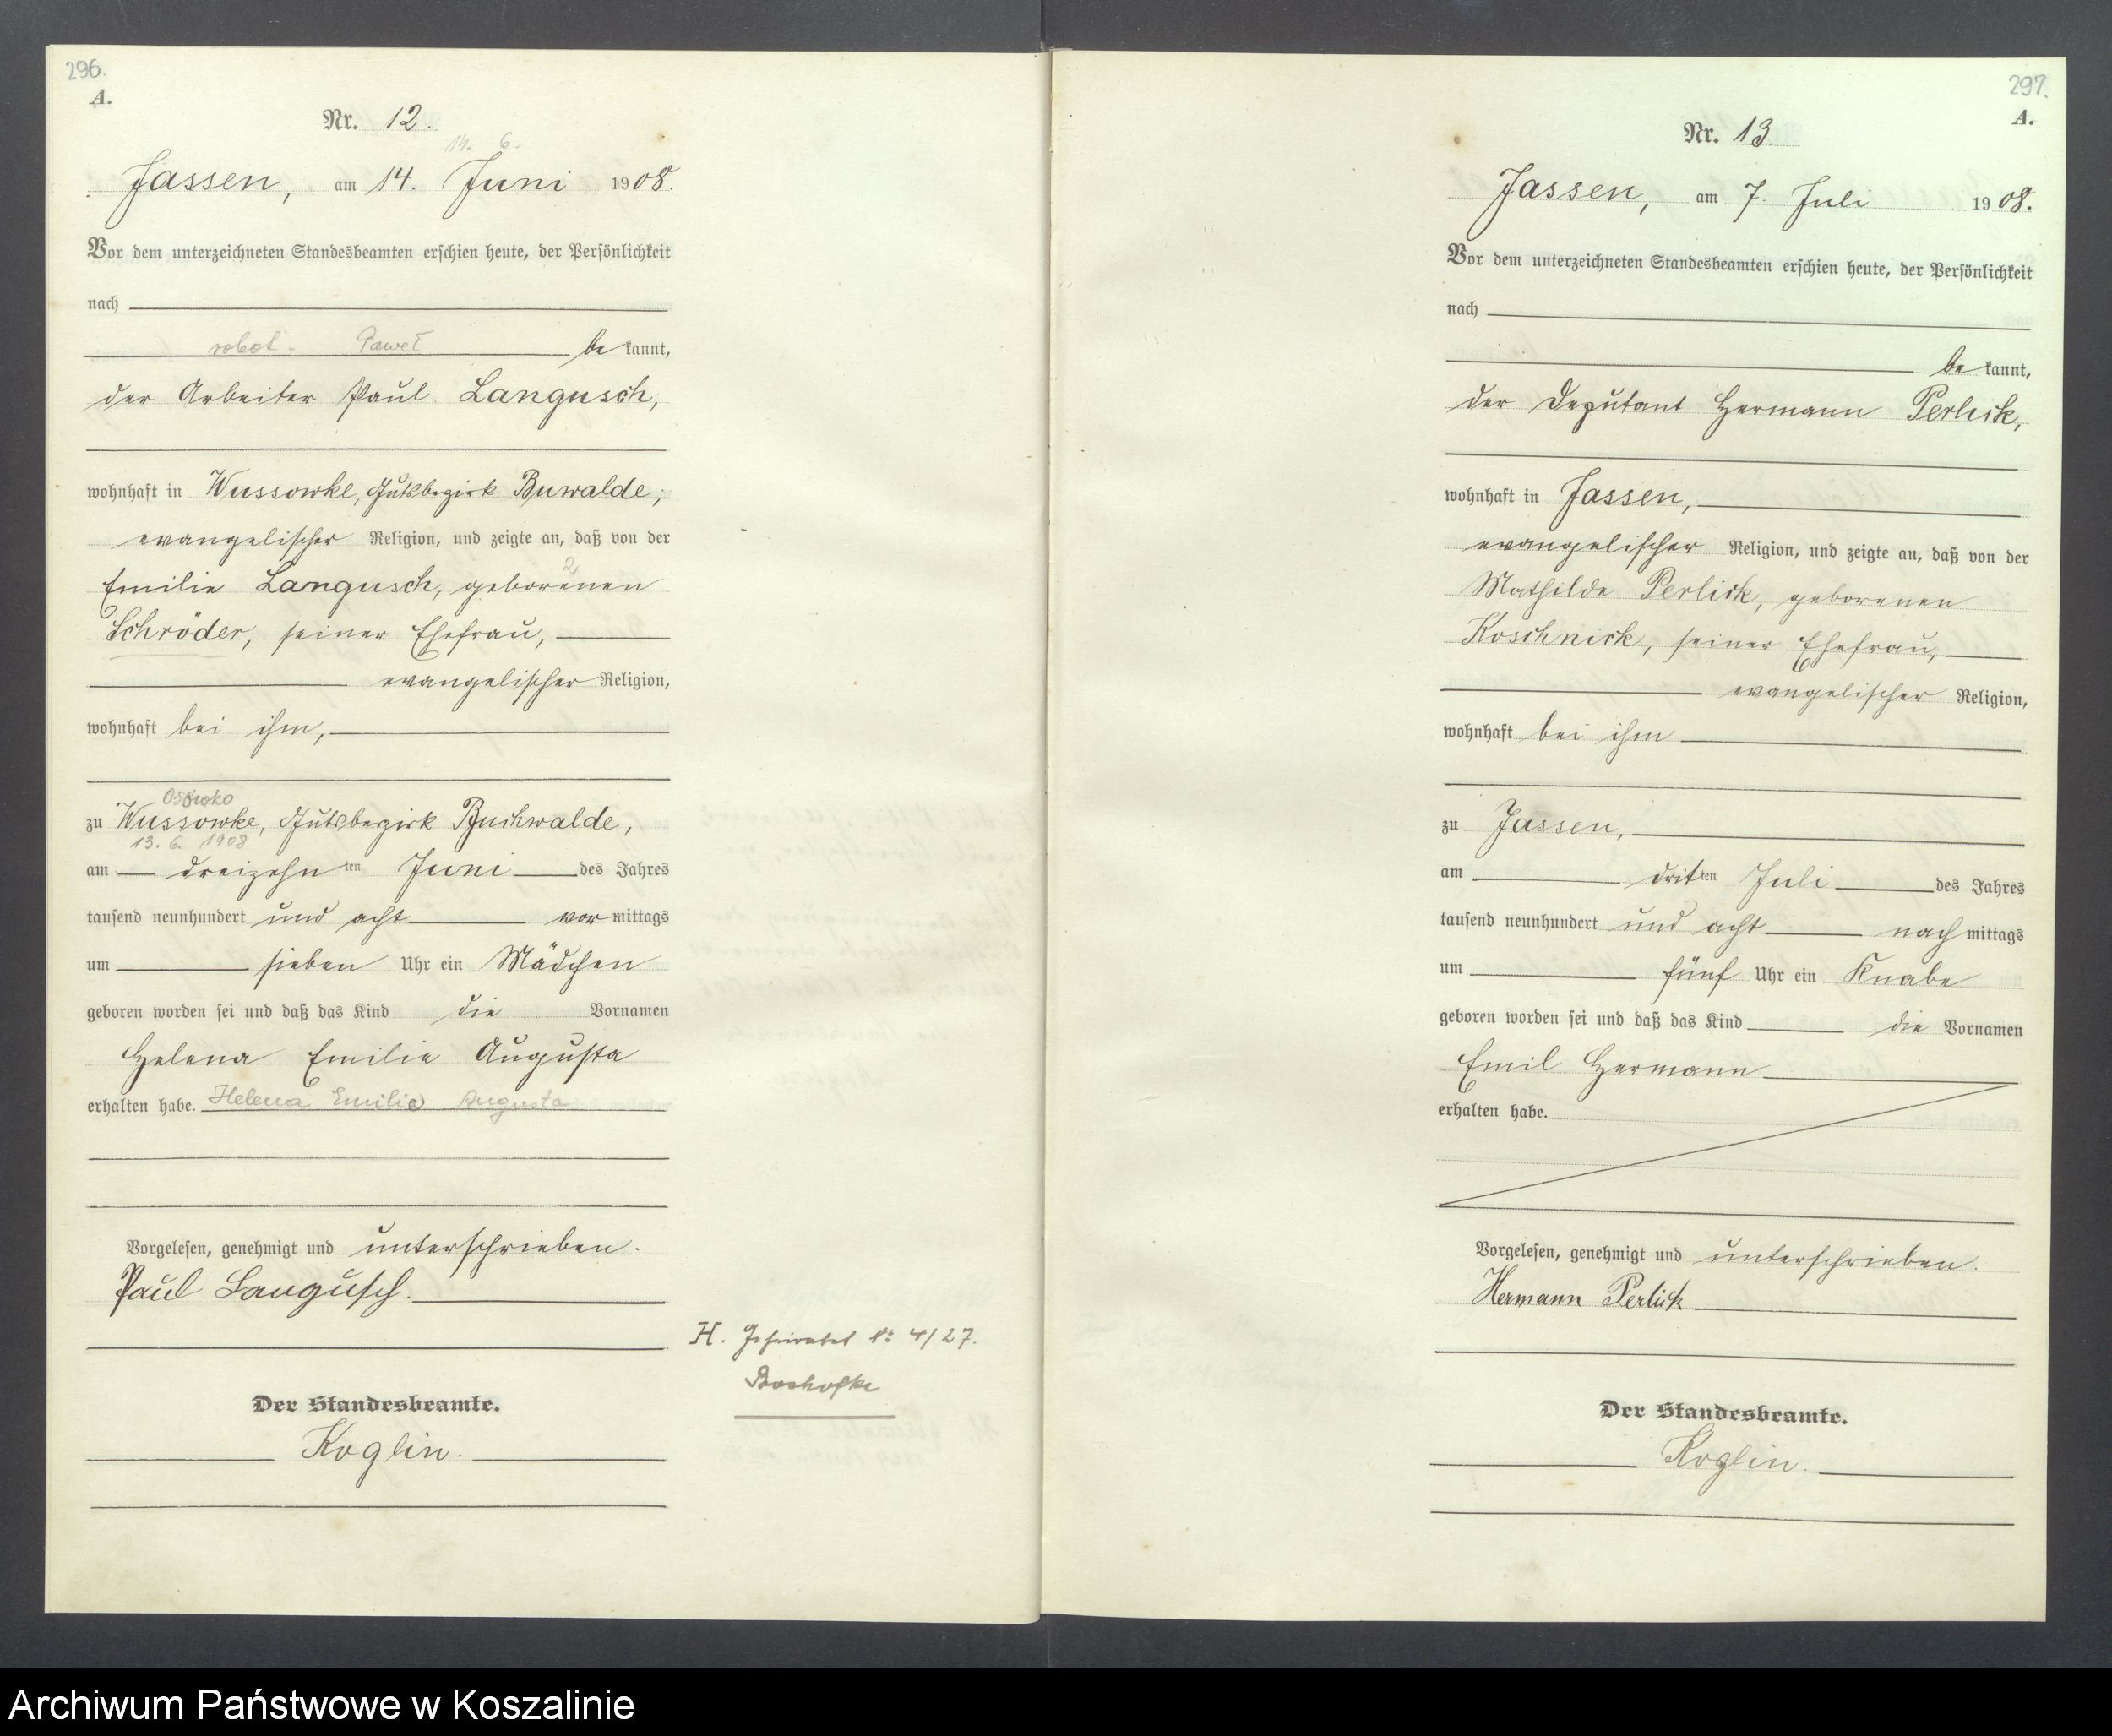 296.
A.
Nr. 12.
14. 6.
Jassen, am 14. Juni 1908.
Vor dem unterzeichneten Standesbeamten erschien heute, der Persönlichkeit
nach
robot- Paweł bekannt,
der Arbeiter Paul Langusch,
wohnhaft in Wussowke, Gutsbezirk Buwalde,
evangelischer Religion, und zeigte an, daß von der
Emilie Langusch, geborenen
Schröder, seiner Ehefrau,
evangelischer Religion,
wohnhaft bei ihm,
Ossuwko
zu Wussowke, Gutsbezirk Buchwalde,
13. 6. 1908
am dreizehnten Juni des Jahres
tausend neunhundert und acht vormittags
um sieben Uhr ein Mädchen
geboren worden sei und daß das Kind die Vornamen
Helena Emilie Augusta
erhalten habe. Helena Emilie Augusta
Vorgelesen, genehmigt und unterschrieben.
Paul Langusch.
Der Standesbeamte.
Koglin.
H. Geheiratet Nr 4/27.
297.
A.
Nr. 13.
Jassen, am 7. Juli 1908.
Vor dem unterzeichneten Standesbeamten erschien heute, der Persönlichkeit
nach
bekannt,
der Deputant Hermann Perlick,
wohnhaft in Jassen,
evangelischer Religion, und zeigte an, daß von der
Mathilde Perlick, geborenen
Koschnick, seiner Ehefrau,
evangelischer Religion,
wohnhaft bei ihm
zu Jassen,
am dritten Juli des Jahres
tausend neunhundert und acht nachmittags
um fünf Uhr ein Knabe
geboren worden sei und daß das Kind die Vornamen
Emil Hermann
erhalten habe.
Vorgelesen, genehmigt und unterschrieben.
Hermann Perlick
Der Standesbeamte.
Koglin.
Archiwum Państwowe w Koszalinie